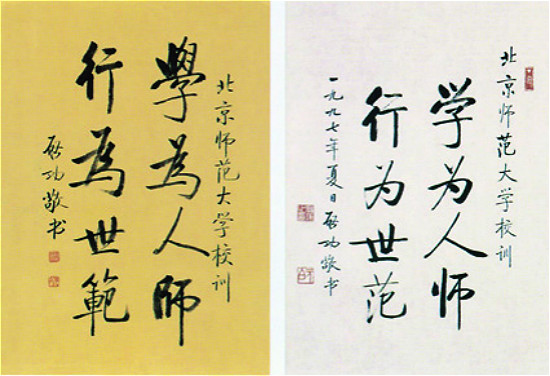 北京师范大学校训
學為人師
行為世範
启功敬书
北京师范大学校训
学为人师
行为世范
一九九七年夏日启功敬书